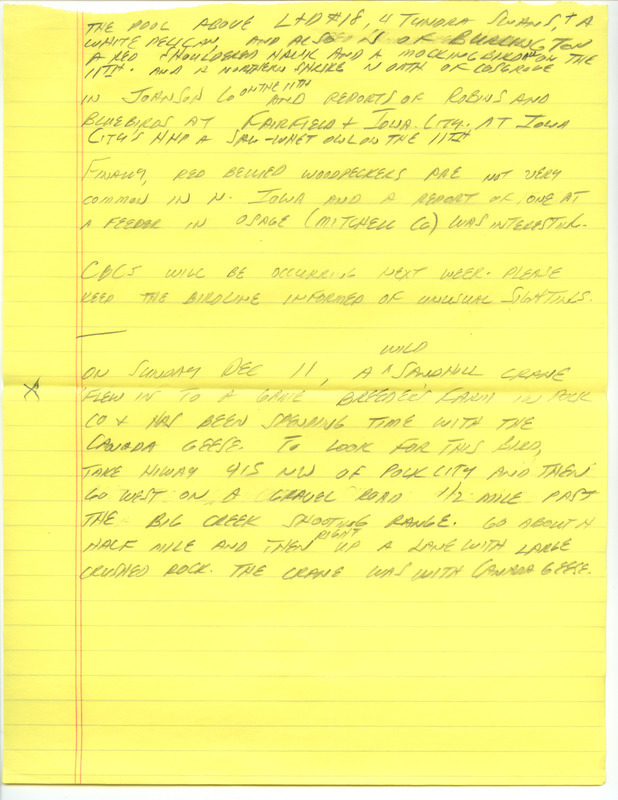 THE POOL ABOVE L+D #18, 4 TUNDRA SWANS, + A
WHITE PELICAN, AND ALSO S OF BURLINGTON
A RED SHOULDERED HAWK AND A MOCKINGBIRD ON THE
11TH. AND A NORTHERN SHRIKE NORTH OF COSGROVE
IN JOHNSON CO ON THE 11TH AND REPORTS OF ROBINS AND
BLUEBIRDS AT FAIRFIELD + IOWA CITY. AT IOWA
CITY'S HHP A SAW-WHET OWL ON THE 11TH
FINALLY, RED BELLIED WOODPECKERS ARE NOT VERY
COMMON IN N. IOWA AND A REPORT OF ONE AT
A FEEDER IN OSAGE (MITCHELL CO) WAS INTERESTING.
CBCS WILL BE OCCURRING NEXT WEEK. PLEASE
KEEP THE BIRDLINE INFORMED OF UNUSUAL SIGHTINGS.
ON SUNDAY DEC 11, A ^ WILD SANDHILL CRANE
X FLEW IN TO A GAME BREEDER'S FARM IN POLK
CO + HAS BEEN SPENDING TIME WITH THE
CANADA GEESE. TO LOOK FOR THIS BIRD,
TAKE HIWAY 415 NW OF POLK CITY AND THEN
GO WEST ON A GRAVEL ROAD 1/2 MILE PAST
THE BIG CREEK SHOOTING RANGE. GO ABOUT A
HALF MILE AND THEN RIGHT UP A LANE WITH LARGE
CRUSHED ROCK. THE CRANE WAS WITH CANADA GEESE.